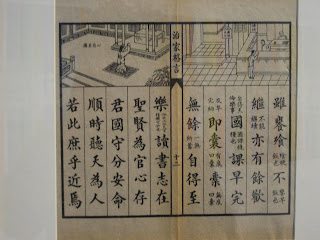 雖饔飧不
繼亦有餘歡
國課早完
即囊橐
無餘自得至
治家格言
十二
樂讀書志在
聖賢為官心存
君國守分安命
順時聽天為人
若此庶乎近焉